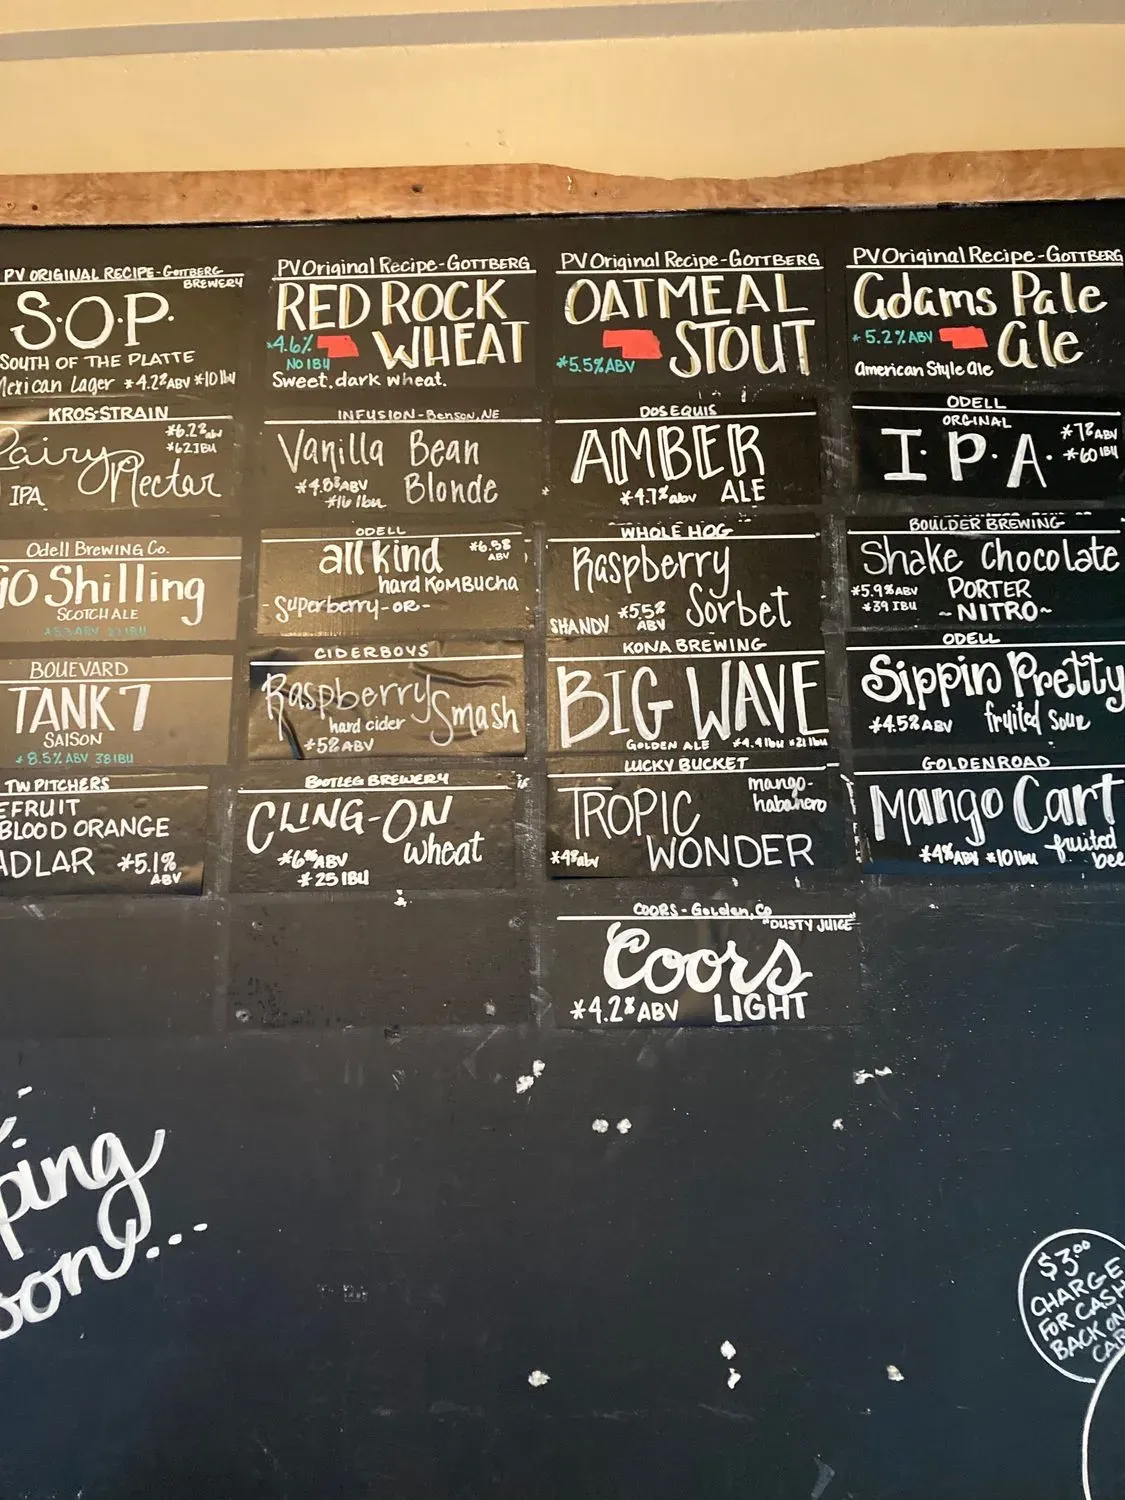 PV ORIGINAL RECIPE-GOTTBERG
BREWERY
S.O.P.
SOUTH OF THE PLATTE
Mexican Lager *4.2%ABV *10 IBU
PV Original Recipe-GOTTBERG
RED ROCK
*4.6%
WHEAT
NO IBU
Sweet. dark wheat.
PV Original Recipe-GOTTBERG
OATMEAL
STOUT
*5.5%ABV
PV Original Recipe-GOTTBERG
Adams Pale
*5.2%ABV
Ale
American Style Ale
KROS-STRAIN
*6.2%abv
*62IBU
Fairy
Nectar
IPA
INFUSION-Benson,NE
Vanilla Bean
*4.8%ABV
Blonde
*16 ibu
DOS EQUIS
AMBER
*4.7%abv
ALE
ODELL
ORGINAL
I.P.A.
*7%ABV
*60 IBU
Odell Brewing Co.
90 Shilling
SCOTCH ALE
ODELL
all kind
*6.5%
ABV
hard KOMBUCHA
-Superberry-OR-
WHOLE HOG
Raspberry
Sorbet
SHANDY
*5.5%
ABV
BOULDER BREWING
Shake Chocolate
*5.9%ABV
PORTER
*39 IBU
~NITRO~
BOUEVARD
TANK 7
SAISON
*8.5%ABV 38IBU
CIDERBOYS
Raspberry Smash
hard cider
*5%ABV
KONA BREWING
BIG WAVE
GOLDEN ALE *4.4 Ibu *21 Ibu
ODELL
Sippin Pretty
*4.5%ABV
fruited sour
TW PITCHERS
EFRUIT
BLOOD ORANGE
ADLAR
*5.1%
ABV
BOOTLEG BREWERY
CLING-ON
wheat
ABV
*25 IBU
LUCKY BUCKET
mango-
habanero
TROPIC
*4%abv
WONDER
GOLDENROAD
Mango Cart
*4%ABV *10 Ibu
fruited
bee
COORS-Golden, Co
"DUSTY JUICE"
Coors
*4.2%ABV
LIGHT
ping
oon...
$3.00
CHARGE
FOR CASH
BACK ON
CAR